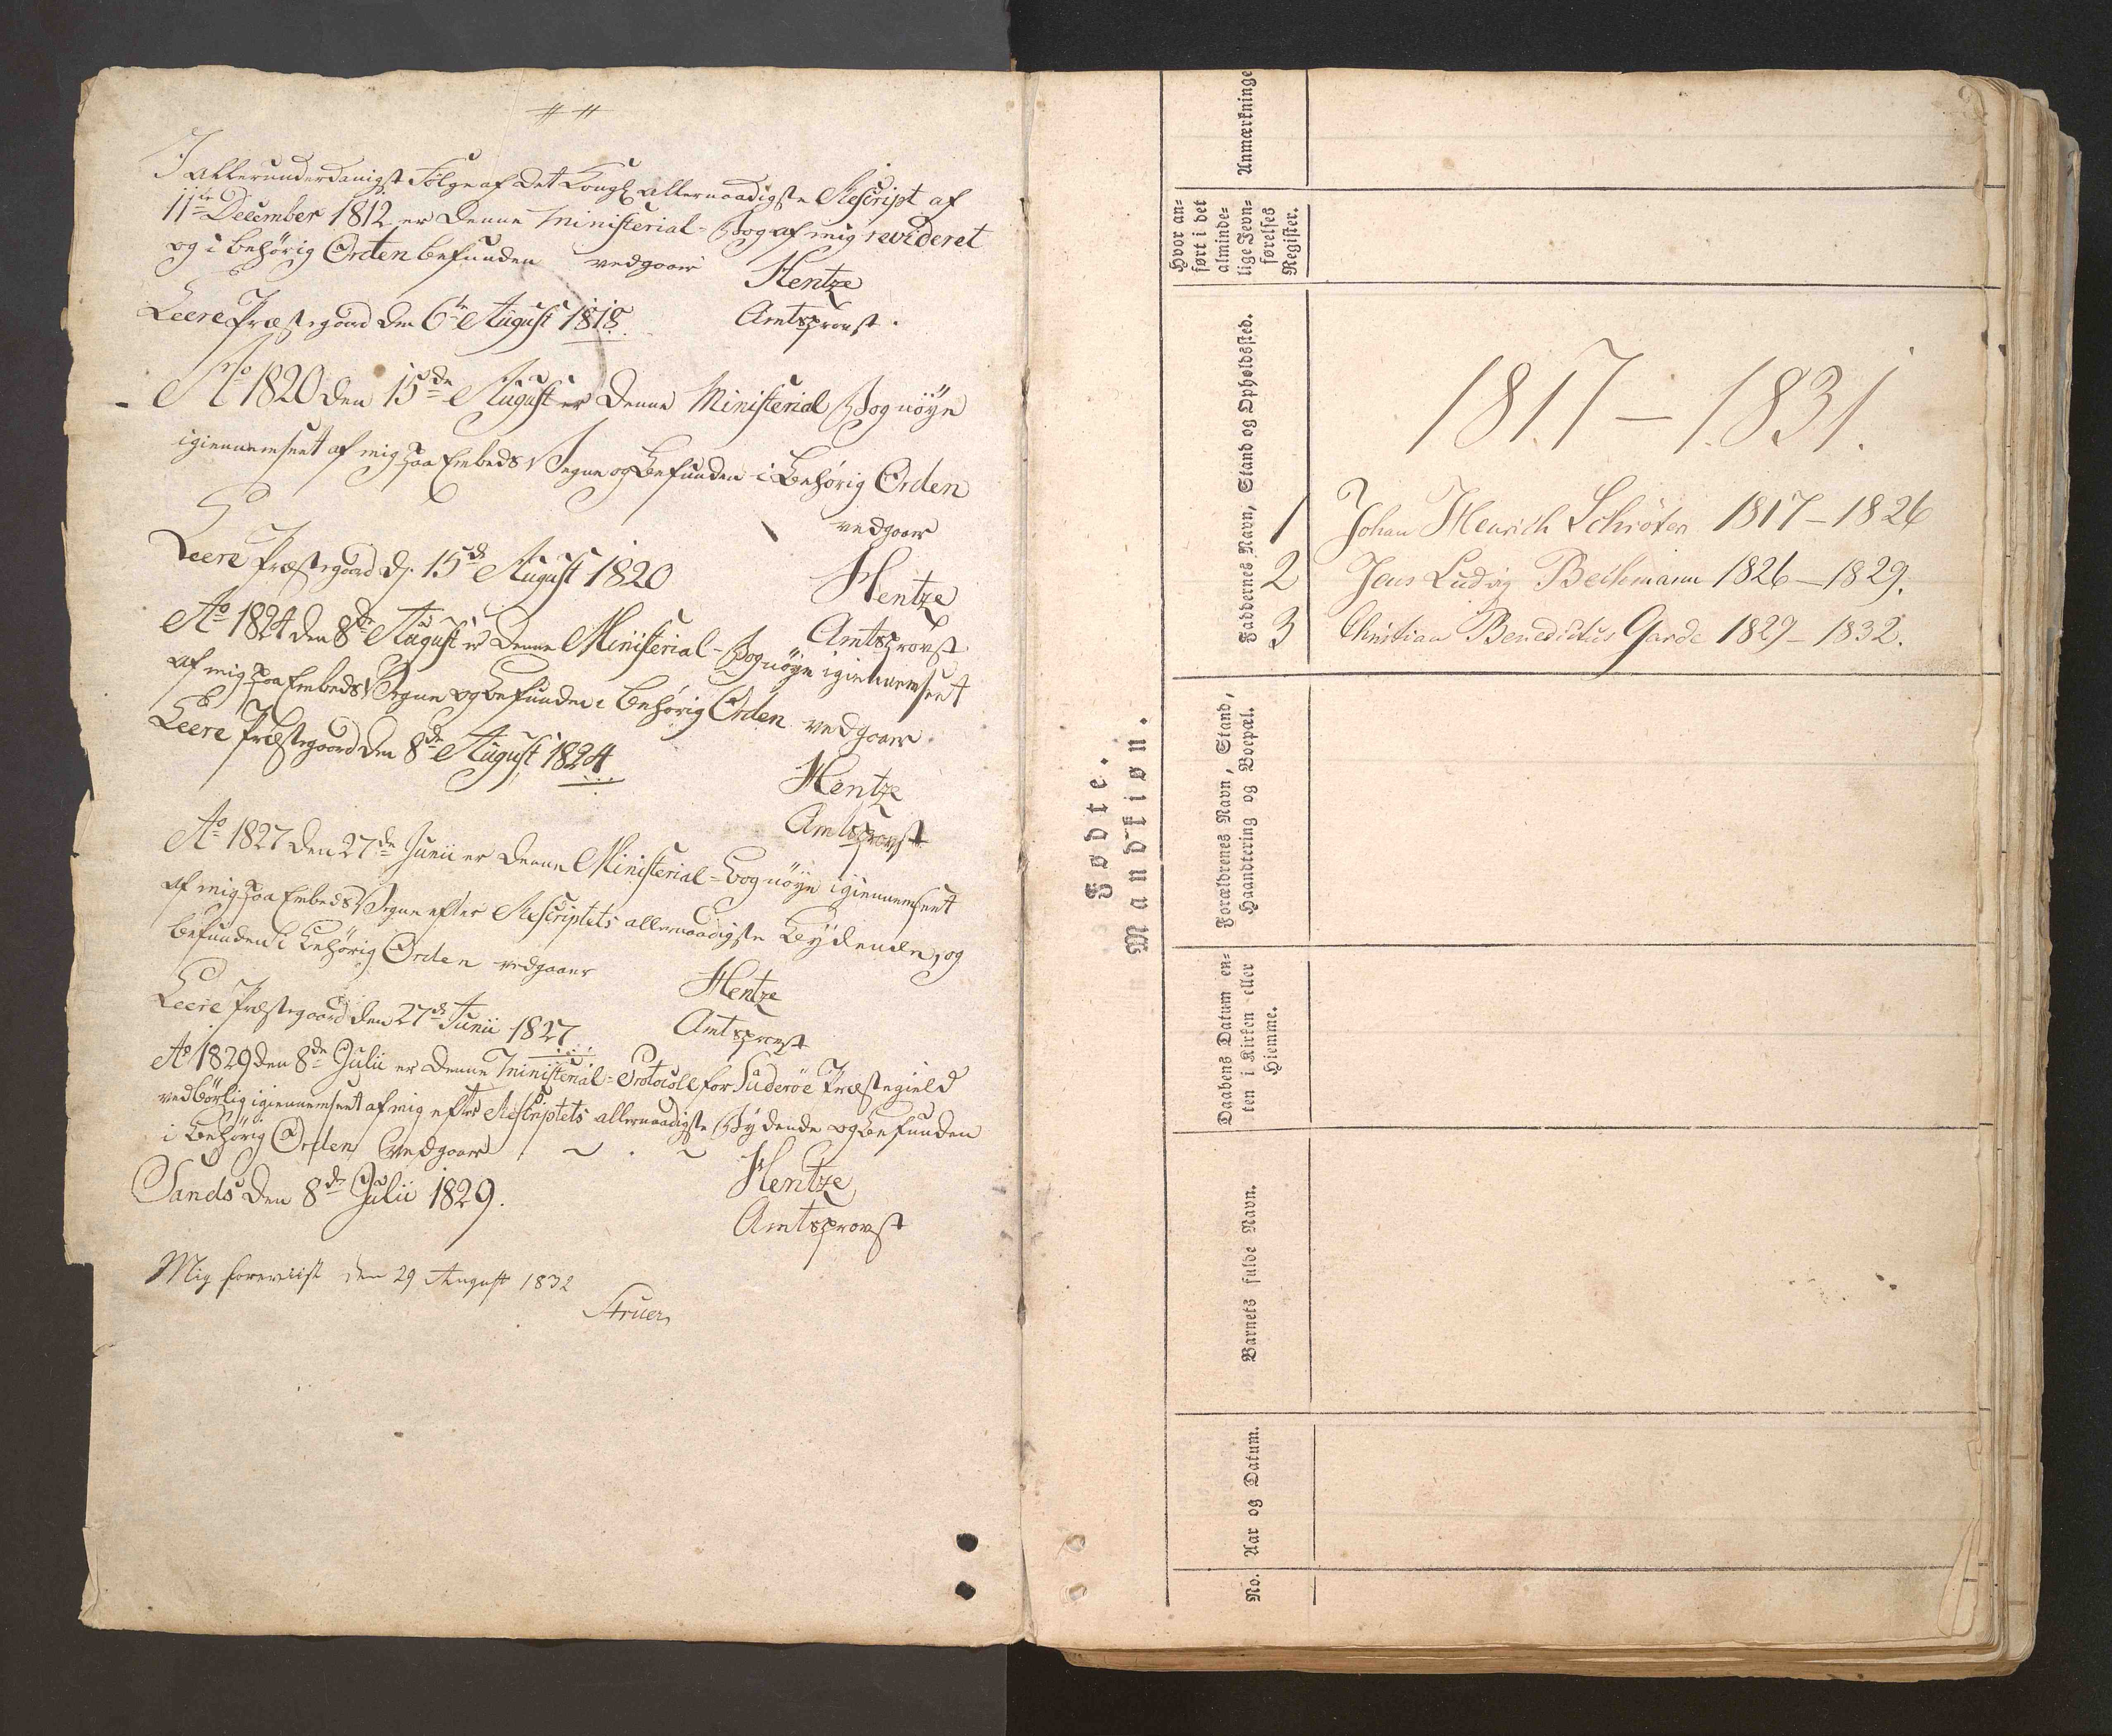 I allerunderdanigst Følge af det Kongl allernaadigste Rescript af
11te December 1812 er denne Ministerial-Bog af mig revideret
og i behørig Orden befunden vedgaaer
Hentze
Leere Præstegaard den 6te August 1818.
Amtsprovst.
Ao 1820 den 15de August er denne Ministerial Bog nöye
igiennemseet af mig paa Embeds Vegne og befunden i behørig Orden
vedgaaer
Leere Præstegaard d. 15de August 1820
Hentze
Amtsprovst
Ao 1824 den 8de August er denne Ministerial-Bog nöye igiennemseet
af mig paa Embeds Vegne og befunden i behørig Orden vedgaaer.
Leere Præstegaard den 8de August 1824
Hentze
Amtsprovst
Ao 1827 den 27de Junii er denne Ministerial-Bog nöye igiennemseet
af mig paa Embeds Vegne efter Rescriptets allernaadigste Bydende, og
befunden i behørig Orden vedgaaer
Hentze
Leere Præstegaard den 27de Junii 1827
Amtsprovst
Ao 1829 den 8de Julii er denne Ministerial-Protocoll for Suderöe Præstegield
vedbörlig igiennemseet af mig efter Rescriptets allernaadigste Bydende og befunden
i behørig Orden vedgaaer
Hentze
Sands den 8de Julii 1829.
Amtsprovst
Mig foreviist den 29 August 1832
Fødte.
Mandkiøn.
No.
Aar og Datum.
Barnets fulde Navn.
Daabens Datum en-
ten i Kirken eller
Hiemme.
Forældrenes Navn, Stand,
Haandtering og Boepæl.
Faddernes Navn, Stand og Opholdssted.
Hvor an-
ført i det
alminde-
lige Jevn-
førelses
Register.
Anmærkninge
1817-1831.
1 Johan Henrich Schröter 1817-1826
2 Jens Ludvig Beckmann 1826-1829.
3 Christian Benedictus Garde 1829-1832.